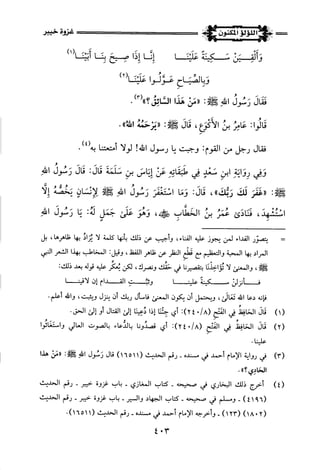 اللؤلؤ المكنون
غزوة خيبر
وَأَلْقِيَنْ سَكِينَةً عَلَيْنَا إِنَّا إِذَا صِيحَ بِنَا أَبَيْنَا (١)
وَبِالصِّيَاحِ عَوَّلُوا عَلَيْنَا (٢)
فَقَالَ رَسُولُ اللهِ ﷺ: «مَنْ هَذَا السَّائِقُ؟» (٣).
قَالُوا: عَامِرُ بنُ الأَكْوَعِ، قَالَ ﷺ: «يَرْحَمُهُ اللهُ».
فقال رجل من القوم: وجبت يا رسول الله! لولا أمتعتنا به (٤).
وَفِي رِوَايَةِ ابنِ سَعْدٍ فِي طَبَقَاتِهِ عَنْ إِيَاسَ بنِ سَلَمَةَ قَالَ: قَالَ رَسُولُ اللهِ
ﷺ: «غَفَرَ لَكَ رَبُّكَ»، قَالَ: وَمَا اسْتَغْفَرَ رَسُولُ اللهِ ﷺ لِإِنْسَانٍ يَخُصُّهُ إِلَّا
اسْتُشْهِدَ، فَنَادَى عُمَرُ بنُ الخَطَّابِ ﷺ، وَهُوَ عَلَى جَمَلٍ لَهُ: يَا رَسُولَ اللهِ
= يتصوّر الفداء لمن يجوز عليه الفناء، وأجيب عن ذلك بأنها كلمة لا يُرَادُ بها ظاهرها، بل
المراد بها المحبة والتعظيم مع قطع النظر عن ظاهر اللفظ، وقيل: المخاطب بهذا الشعر النبي
ﷺ، والمعنى لا تُؤاخِذْنا بتقصيرنا في حقّك ونصرك، لكن يُعكّر عليه قوله بعد ذلك:
فأنزلن سكينة علينا وثبّت الأقدام إن لاقينا
فإنه دعا الله تَعَالَى، ويحتمل أن يكون المعنى فاسأل ربك أن ينزل ويثبت، والله أعلم.
(١) قَالَ الحَافِظُ فِي الفَتْحِ (٢٤٠/٨): أي جِئْنَا إذا دُعِينَا إلى القتال أو إلى الحق.
(٢) قَالَ الحَافِظُ فِي الفَتْحِ (٢٤٠/٨): أي قصدُونا بالدُّعاء بالصوت العالي واستَغَاثُوا
علينا.
(٣) في رواية الإمام أحمد في مسنده - رقم الحديث (١٦٥١١) قال رَسُولُ اللهِ ﷺ: «مَنْ هذا
الحَادِي؟».
(٤) أخرج ذلك البخاري في صحيحه - كتاب المغازي - باب غزوة خيبر - رقم الحديث
(٤١٩٦) - ومسلم في صحيحه - كتاب الجهاد والسير - باب غزوة خيبر - رقم الحديث
(١٨٠٢) (١٢٣) - وأخرجه الإمام أحمد في مسنده - رقم الحديث (١٦٥١١).
٤٠٣